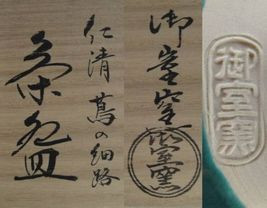 御室窯
御室窯
仁清 蔦の細路
茶碗
御室窯